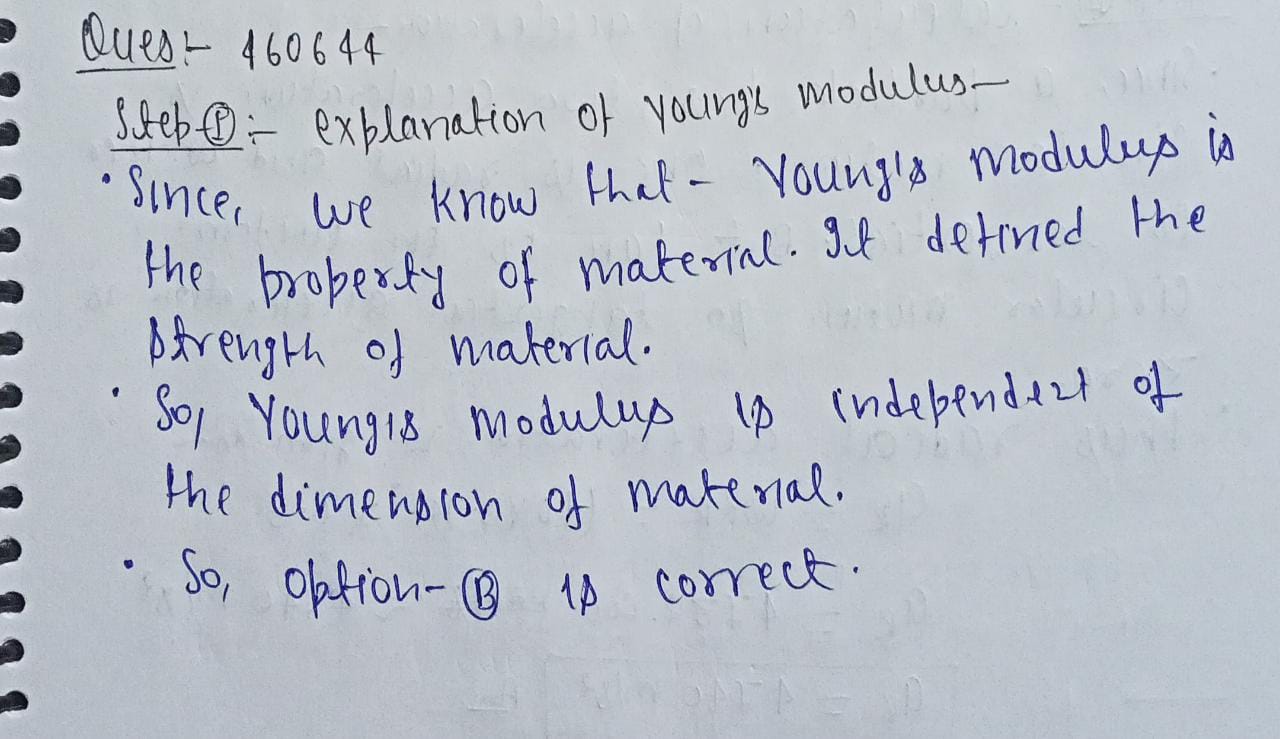 Ques:- 460644
Step-①:- explanation of young's modulus-
• Since, we know that - Young's modulus is
the property of material. It defined the
strength of material.
• So, Young's modulus is independent of
the dimension of material.
• So, option-Ⓑ is correct.